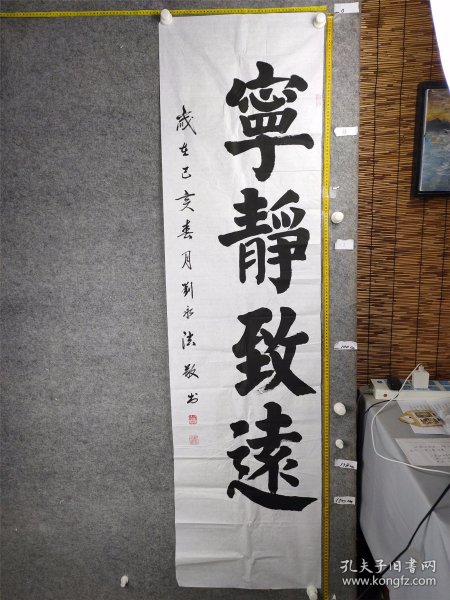 寧靜致遠
歲在己亥春月劉永法敬書
孔夫子旧书网
www.kongfz.com